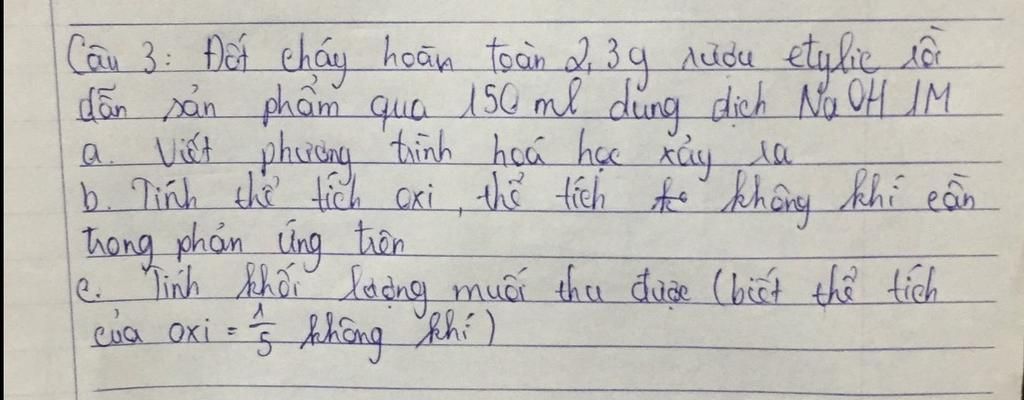 Câu 3: Đốt cháy hoàn toàn 2,3g rượu etylic rồi
dẫn sản phẩm qua 150 ml dung dịch NaOH 1M
a. Viết phương trình hoá học xảy ra
b. Tính thể tích oxi, thể tích không khí cần
trong phản ứng trên
c. Tính khối lượng muối thu được (biết thể tích
của oxi = 1/5 không khí)